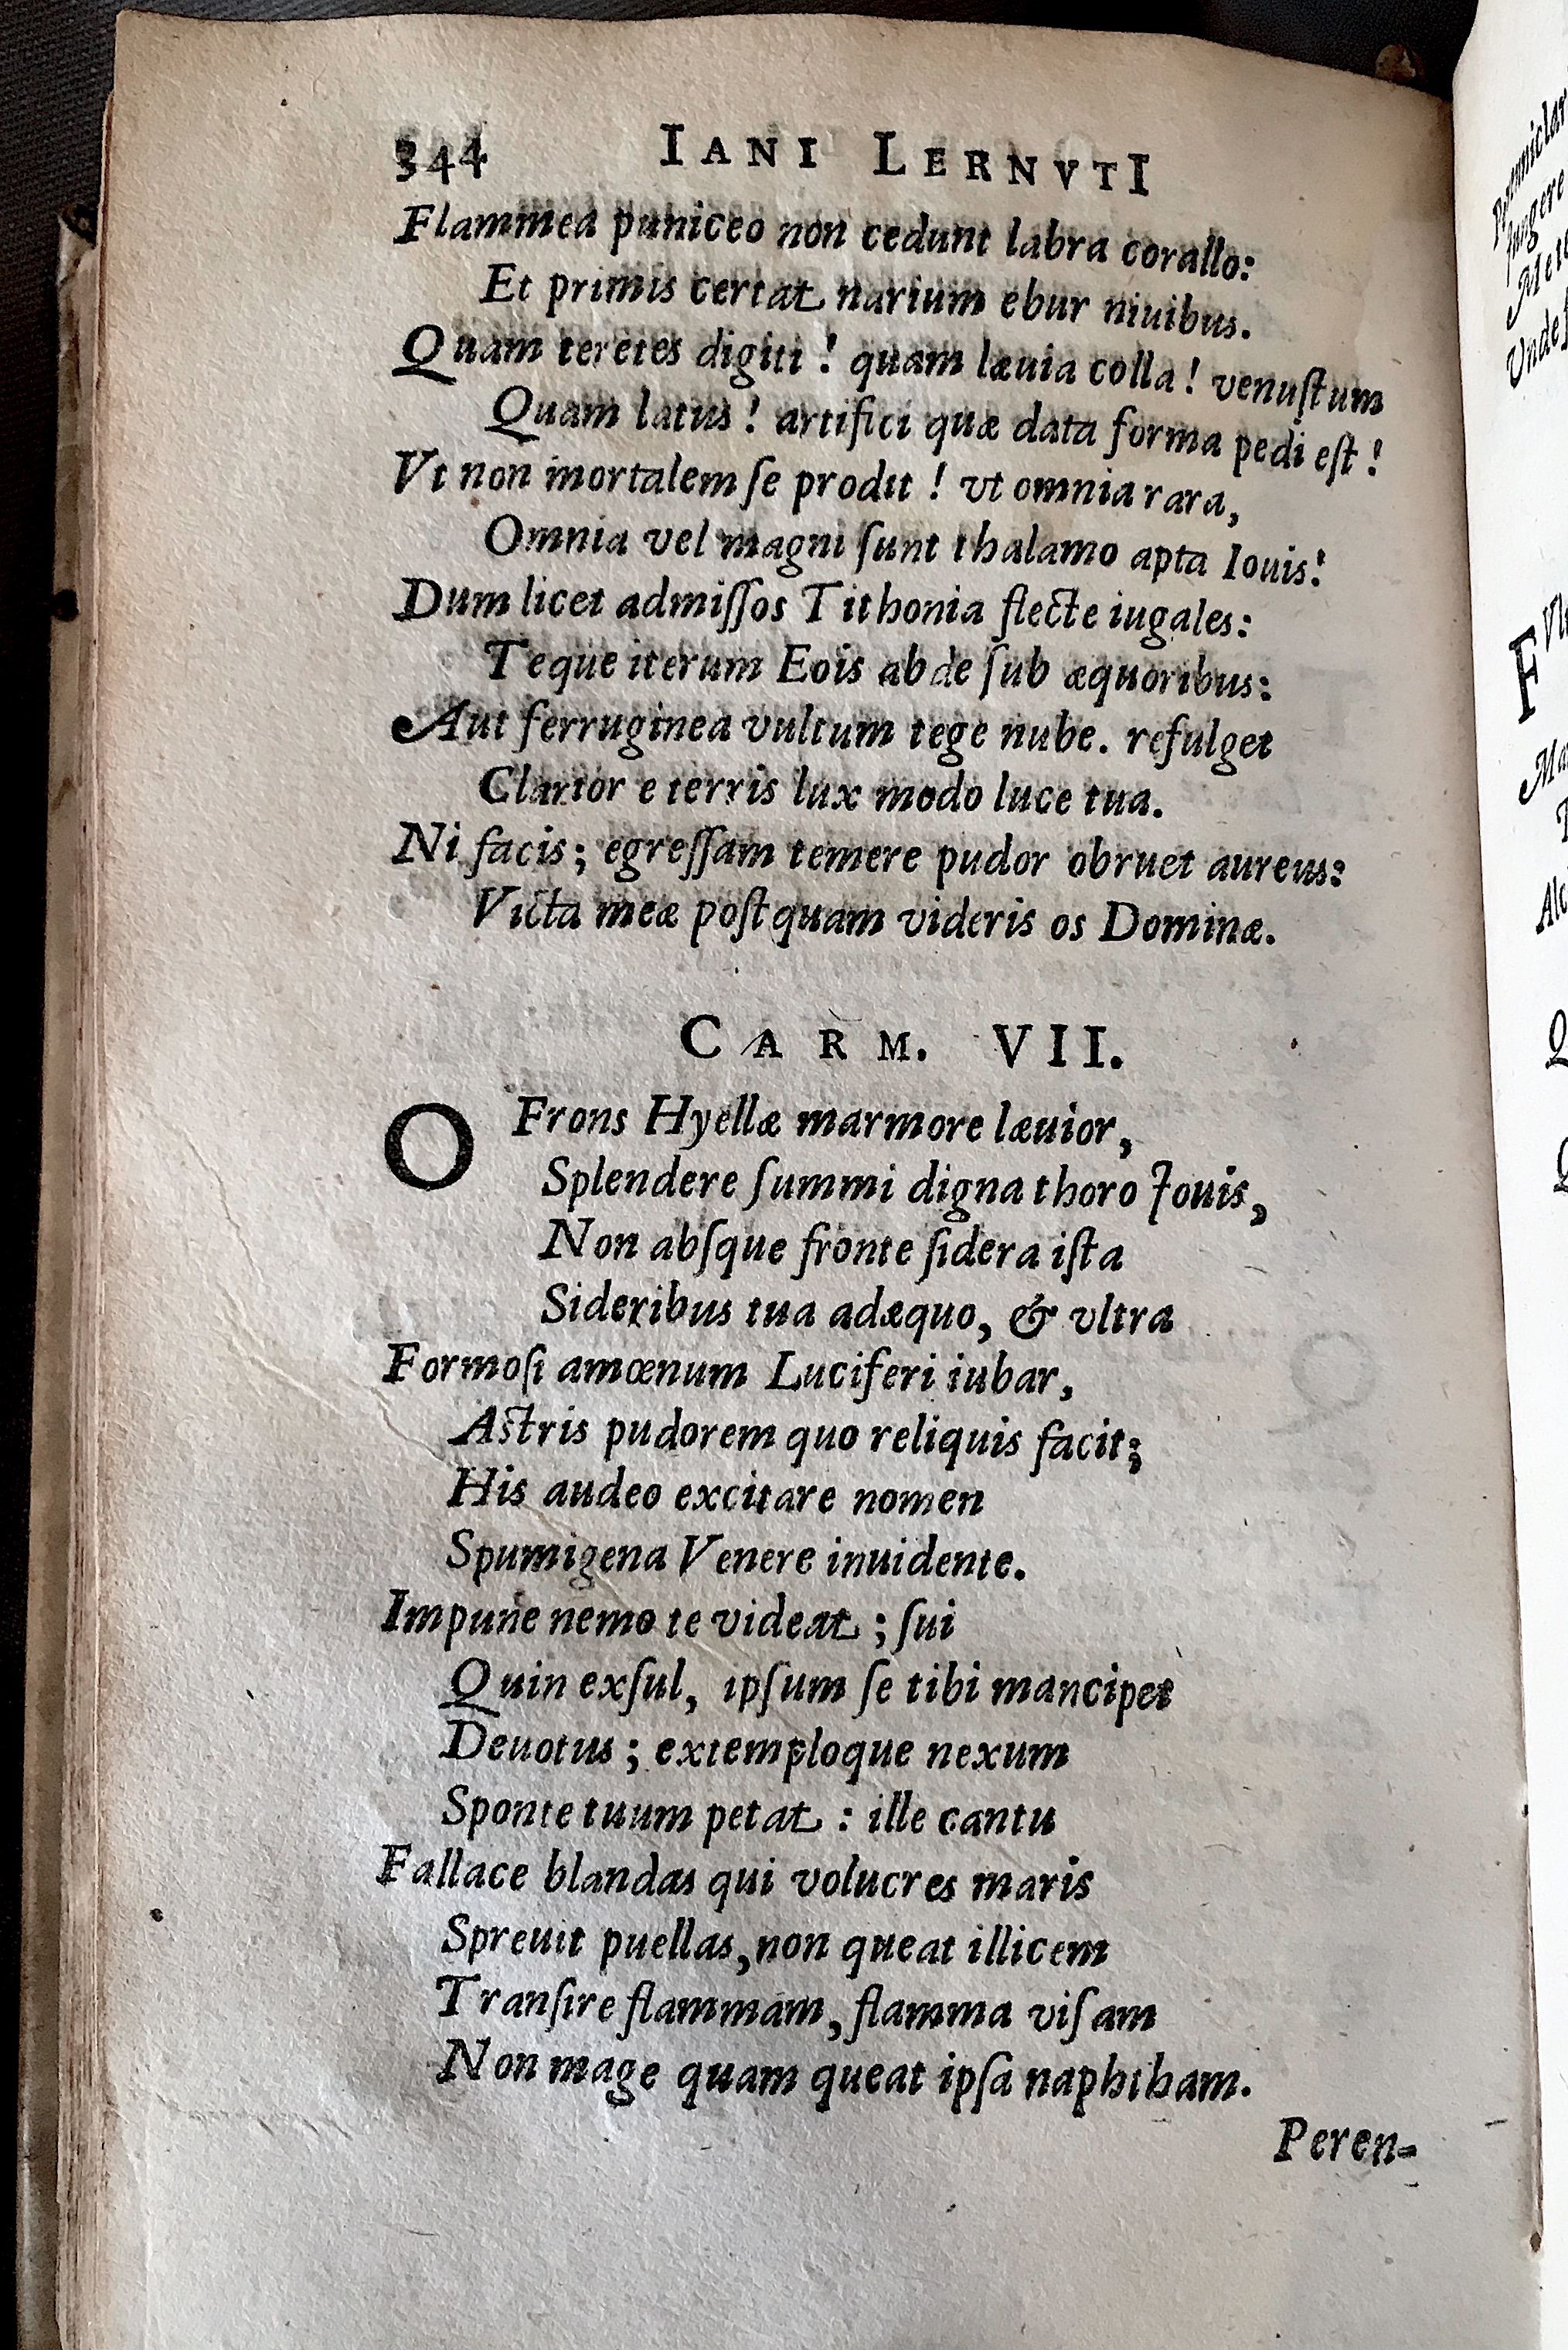 344 IANI LERNVTI
Flammea puniceo non cedunt labra corallo:
Et primis certat narium ebur niuibus.
Quam teretes digiti! quam læuia colla! venuſtum
Quam latus! artifici quæ data forma pedi eſt!
Vt non mortalem ſe prodit! vt omnia rara,
Omnia vel magni ſunt thalamo apta Iouis!
Dum licet admiſſos Tithonia flecte iugales:
Teque iterum Eois abde ſub æquoribus:
Aut ferruginea vultum tege nube. refulget
Clarior e terris lux modo luce tua.
Ni facis; egreſſam temere pudor obruet aureus:
Victa meæ poſtquam videris os Dominæ.
CARM. VII.
O Frons Hyellæ marmore læuior,
Splendere ſummi digna thoro Iouis,
Non abſque fronte ſidera iſta
Sideribus tua adæquo, & vltra
Formoſi amœnum Luciferi iubar,
Aſtris pudorem quo reliquis facit;
His audeo excitare nomen
Spumigena Venere inuidente.
Impune nemo te videat; ſui
Quin exſul, ipſum ſe tibi mancipet
Deuotus; extemploque nexum
Sponte tuum petat: ille cantu
Fallace blandas qui volucres maris
Spreuit puellas, non queat illicem
Tranſire flammam, flamma viſam
Non mage quam queat ipſa naphtham.
Peren-
Iungere
Vnde